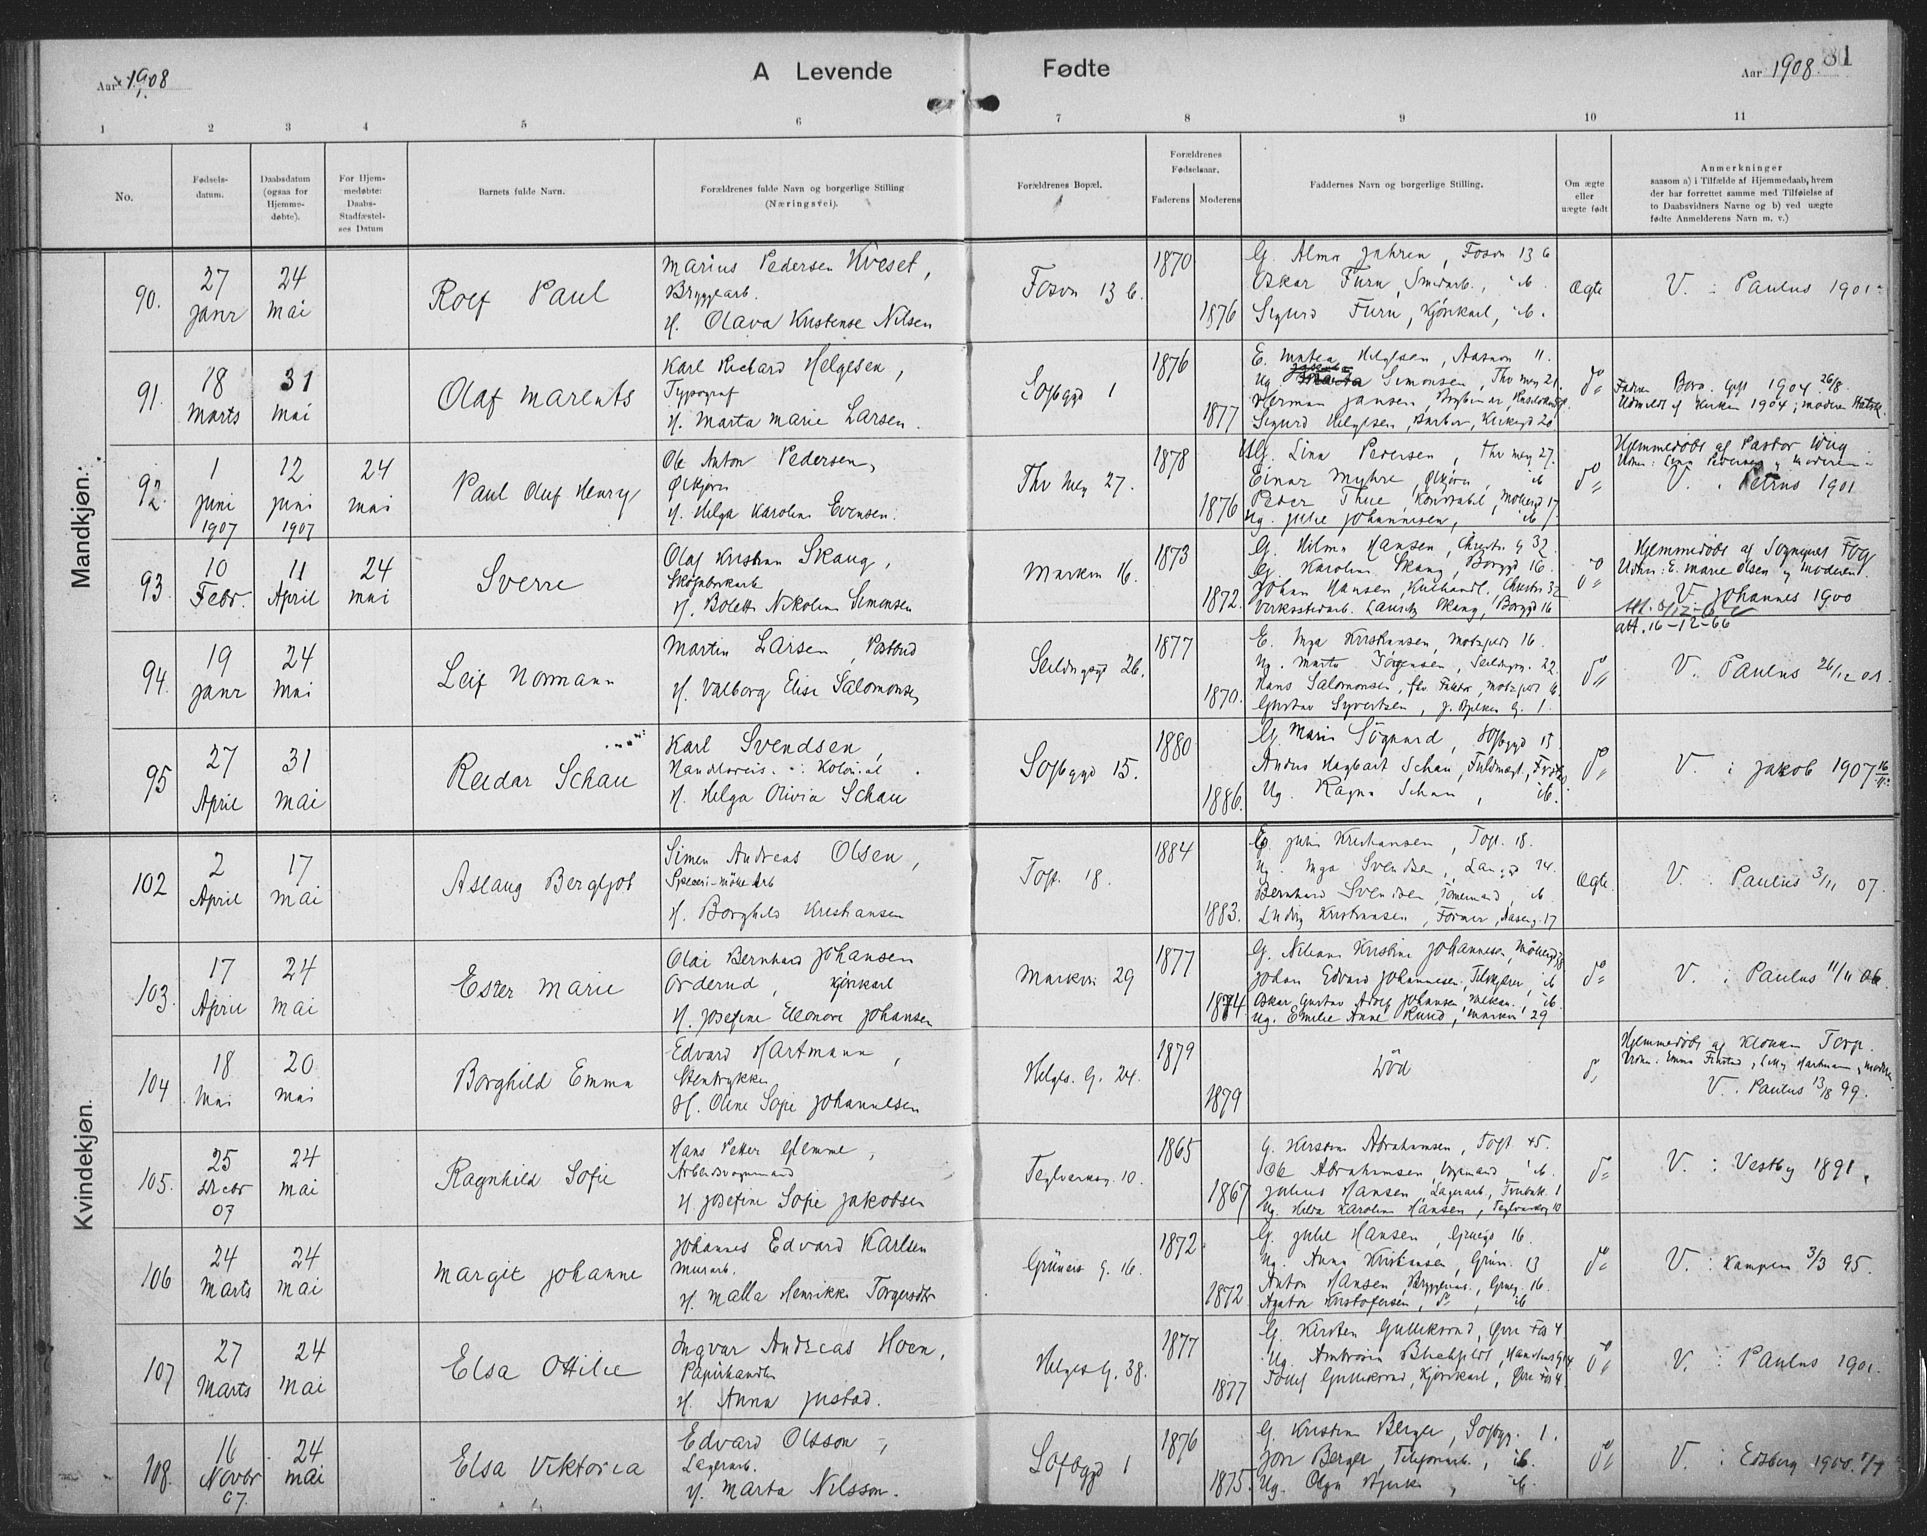 Aar 1908
A Levende Fødte
Aar 1908.
31
1 2 3 4 5 6 7 8 9 10 11
No.
Fødsels-
datum.
Daabsdatum
(ogsaa for
Hjemme-
døbte).
For Hjem-
medøbte:
Daabs-
Stadfæstel-
ses Datum
Barnets fulde Navn.
Forældrenes fulde Navn og borgerlige Stilling
(Næringsvei).
Forældrenes Bopæl.
Forældrenes
Fødselsaar.
Faderens Moderens
Faddernes Navn og borgerlige Stilling.
Om ægte
eller
uægte født
Anmerkninger
saasom a) i Tilfælde af Hjemmedaab, hvem
der har forrettet samme med Tilføielse af
to Daabsvidners Navne og b) ved uægte
fødte Anmelderens Navn m. v.)
Mandkjøn:
90.
27
Janr
24
Mai
Rolf Paul
Marius Pedersen Kveset,
Bryggearb.
H. Olava Kristense Nilsen
Fossvn 13 b.
1870
1876
G. Alma Jahren, Fossvn 13 b
Oskar Furu, Smedarb., ib.
Sigurd Furu, Kjørekarl, ib.
Ægte
V. : Paulus 1901
91.
18
Marts
31
Mai
Olaf Marents
Karl Richard Helgesen,
Typograf
H. Marta Marie Larsen.
Sofbggd 1
1876
1877
E. Matea Helgesen,
Ug. Simonsen, Thv mey 21.
Herman Jansen
Sigurd Helgesen, Barber, Kirkegd 20
do
Fadren Borg. gift 1904 26/8.
Udmeldt af Kirken 1904; moderen Statsk.
92.
1
Juni
1907
12
Juni
1907
24
Mai
Paul Oluf Henry
Ole Anton Pedersen,
Ølkjører
H. Helga Karoline Evensen.
Thv Mey 27.
1878
1876
Ug. Lina Pedersen, Thv mey 27.
Einar Myhre, Ølkjører, ib
Peder Thue, Konstabel, Møllergd 17
Ug. Julie Johannesen, ib
do
Hjemmedøbt af Pastor Wiig
V. Petrus 1901
93.
10
Febr.
11
April
24
Mai
Sverre
Olaf Kristian Skaug,
Skofabrikarb
H. Bolette Nikoline Simonsen
Markvn 16.
1873
1872.
G. Hilma Hansen, Christies g 32.
G. Karoline Skaug, Borggd 16.
Johan Hansen, Kulhandl. Christies 32
Verkstedarb. Lauritz Skaug, Borggd 16
do
Hjemmedøbt af Sogneprest Fog
Vidner: E. Marie Olsen og moderen.
V. Johannes 1900
att. 16-12-66
94.
19
Janr
24
Mai
Leif Normann
Martin Larsen, Postbud
H. Valborg Elise Salomonsen
Seildugsgd 26.
1877
1870.
E. Inga Kristiansen, Motzfeldt 16.
Ug. Marta Jörgensen, Seildugsg. 22.
Hans Salomonsen, fhv. Faktor, Motzfeldt 16.
Gustav Syvertsen, J. Bjelkes G. 1.
do
V. Paulus 26/12 01.
95
27
April
31
Mai
Reidar Schau
Karl Svendsen,
Handlsreis. Kolonial.
H. Helga Olivia Schau
Sofbggd 15.
1880
1886.
G. Marie Sögaard, Sofbggd 15
Anders Hagbart Schau, Fuldmægt.,
Ug. Ragna Schau, ib.
do
V. : Jakob 1907 16/11
Kvindekjøn.
102
2
April
17
Mai
Aslaug Bergljot
Simen Andreas Olsen,
H. Borghild Kristiansen
Toft 18.
1884
1883.
G. Julie Kristiansen, Toft. 18.
Ug. Inga Svendsen, 24.
Bernhard Svendsen, Tömmermand, ib
Ludvig Kristiansen, Former, Aaseng. 17
Ægte.
V. : Paulus 3/11 07.
103.
17
April
24
Mai
Ester Marie
Olai Bernhard Johansen
Orderud, Kjørekarl
H. Josefine Elenore Johansen
Markvn 29
1877
1874
G. Kristine Johannesen, Möllergd 38
Johan Edvard Johannesen, Tilskjærer, ib
Oskar Gustav Adolf Johansen, Mekan., ib.
Ug. Emilie Anne Rund, Markvn 29
do
V. : Paulus 11/11 06.
104
18
Mai
20
Mai
Borghild Emma
Edvard Hartmann,
Stentrykker
H. Oline Sofie Johannesen
Helges. G. 24.
1879
1879
död
do
Hjemmedøbt af Klokker Torp.
V. : Paulus 13/8 99.
105.
25
Decbr
07
24
Mai
Ragnhild Sofie
Hans Petter Glemme,
Arbeidsvognmand
H. Josefine Sofie Jakobsen
Teglverksg. 10.
1865
1867
G. Kirstine Abrahamsen, Toft. 45.
Ole Abrahamsen, Vognmand, ib.
Julius Hansen, Lagerarb.,
Ug. Hilda Karoline Hansen, Teglverksg 10
do
V. : Vestby 1891.
106
24
Marts
24
Mai
Margit Johanne
Johannes Edvard Karlsen
Murarb.
H. Malla Henrikke Torgersdtr
Grüners G. 16.
1872
1872
G. Julie Hansen, Grünegd 16.
Ug. Anna Kristensen, Grün. 13
Anton Hansen, Bryggerimd., Grüneg. 16.
Agaton Kristofersen, do, ib
do
V. : Kampen 3/3 95.
107
27
Marts
24
Mai
Elsa Ottilie
Ingvar Andreas Hoen,
Papirhandler
H. Anna Justad.
Helges G. 38.
1877
1877
G. Kirsten Gulliksrud, Øvre Fos 4
Gulliksrud, Kjørekarl, Øvre Fos 4.
do
V. : Paulus 1901.
108.
16
Novbr
07.
24
Mai
Elsa Viktoria
Edvard Olsson,
Lagerarb.
H. Marta Nilsson.
Sofbggd 1
1876
1875.
G. Kristine Berger, Sofbgg. 1.
Jon Berger, Telefonarb., ib.
Ug. Olga Bjerke, ib
do
V. : Edsberg 1900.